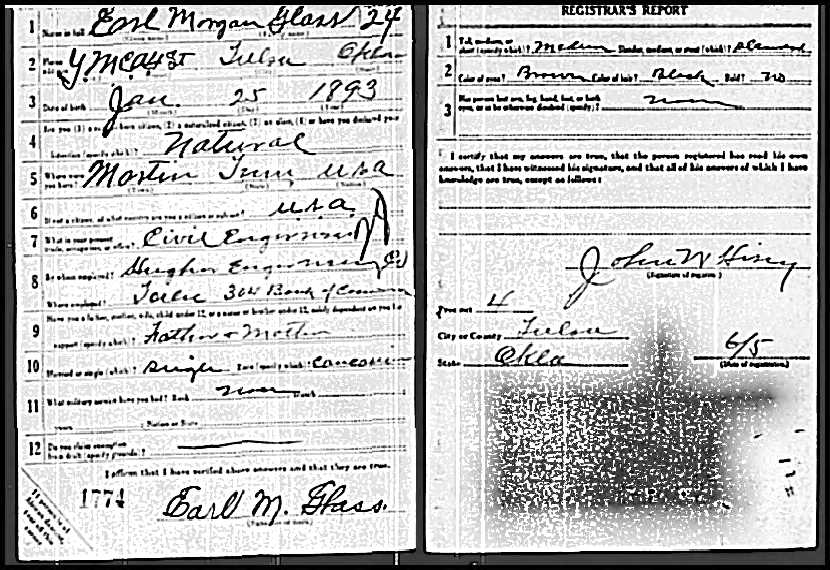 1 Name in full Earl Morgan Glass 24
2 YMCA 4 St Tulsa Okla
3 Date of birth Jan. 25 1893
(Month) (Day) (Year)
4 Natural
5 Martin Tenn USA
(Town) (State) (Nation)
6 U.S.A.
7 What is your present Civil Engineer
8 By whom employed? Hughes Engineering Co
Where employed? Tulsa 304 Bank of Commerce
9 Have you a father, mother, wife, child under 12, or a sister or brother under 12, solely dependent on you for
support (specify which)? Father & Mother
10 Married or single (which)? Single Race (specify which)? Caucasian
11 What military service have you had? Rank none Branch
years Nation or State
12 Do you claim exemption
from draft (specify grounds)?
I affirm that I have verified above answers and that they are true.
1774
Earl M. Glass.
REGISTRAR'S REPORT
1 Tall, medium, or
short (specify which)? Medium Slender, medium, or stout (which)? Slender
2 Color of eyes? Brown Color of hair? Black Bald? No
3 Has person lost arm, leg, hand, foot, or both
eyes, or is he otherwise disabled (specify)? none
I certify that my answers are true, that the person registered has read his own
answers, that I have witnessed his signature, and that all of his answers of which I have
knowledge are true, except as follows:
John W
(Signature of registrar)
Precinct 4
City or County Tulsa
State Okla
6/5
(Date of registration)